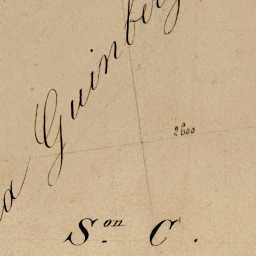 a Guinberg
2600
S.on C.